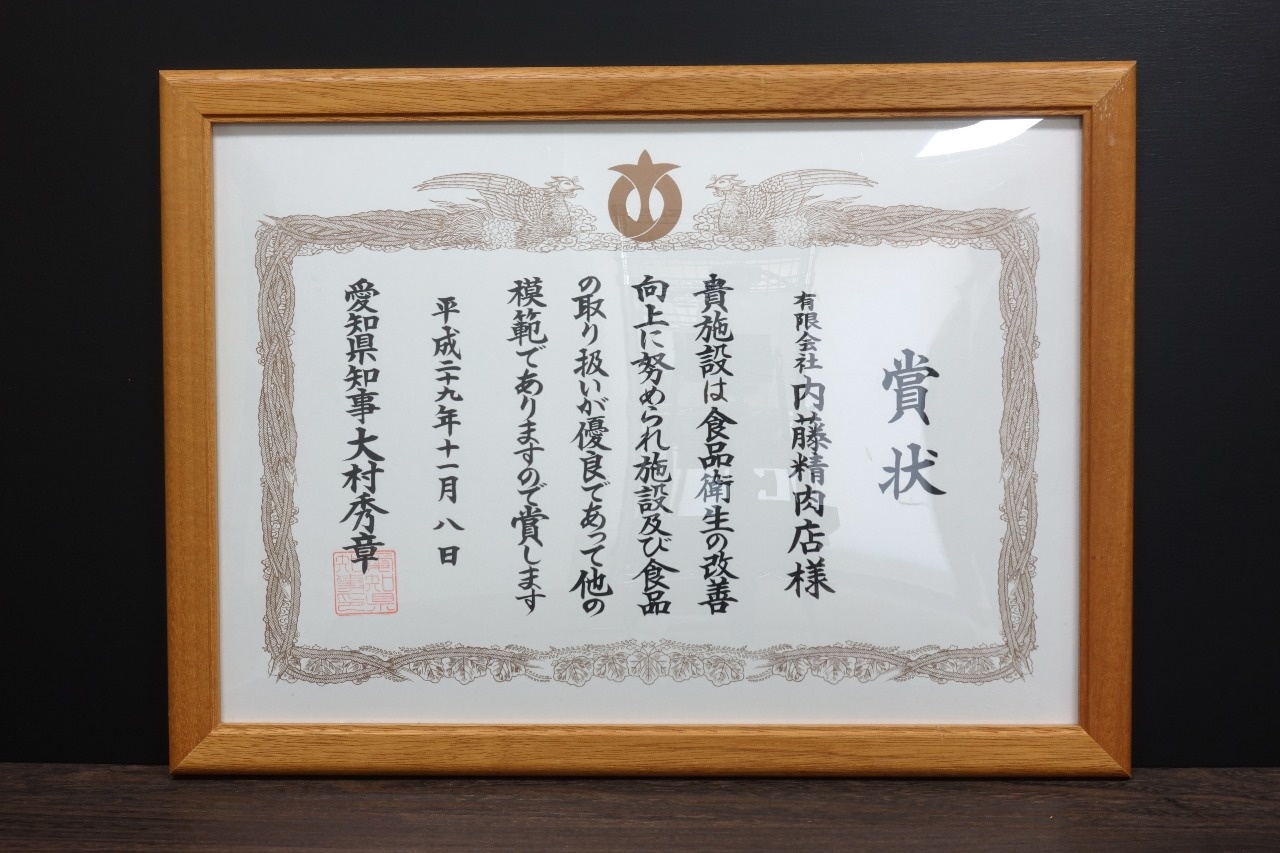 賞状
有限会社内藤精肉店様
貴施設は食品衛生の改善
向上に努められ施設及び食品
の取り扱いが優良であって他の
模範でありますので賞します
平成二十九年十一月八日
愛知県知事大村秀章
愛知県知事印